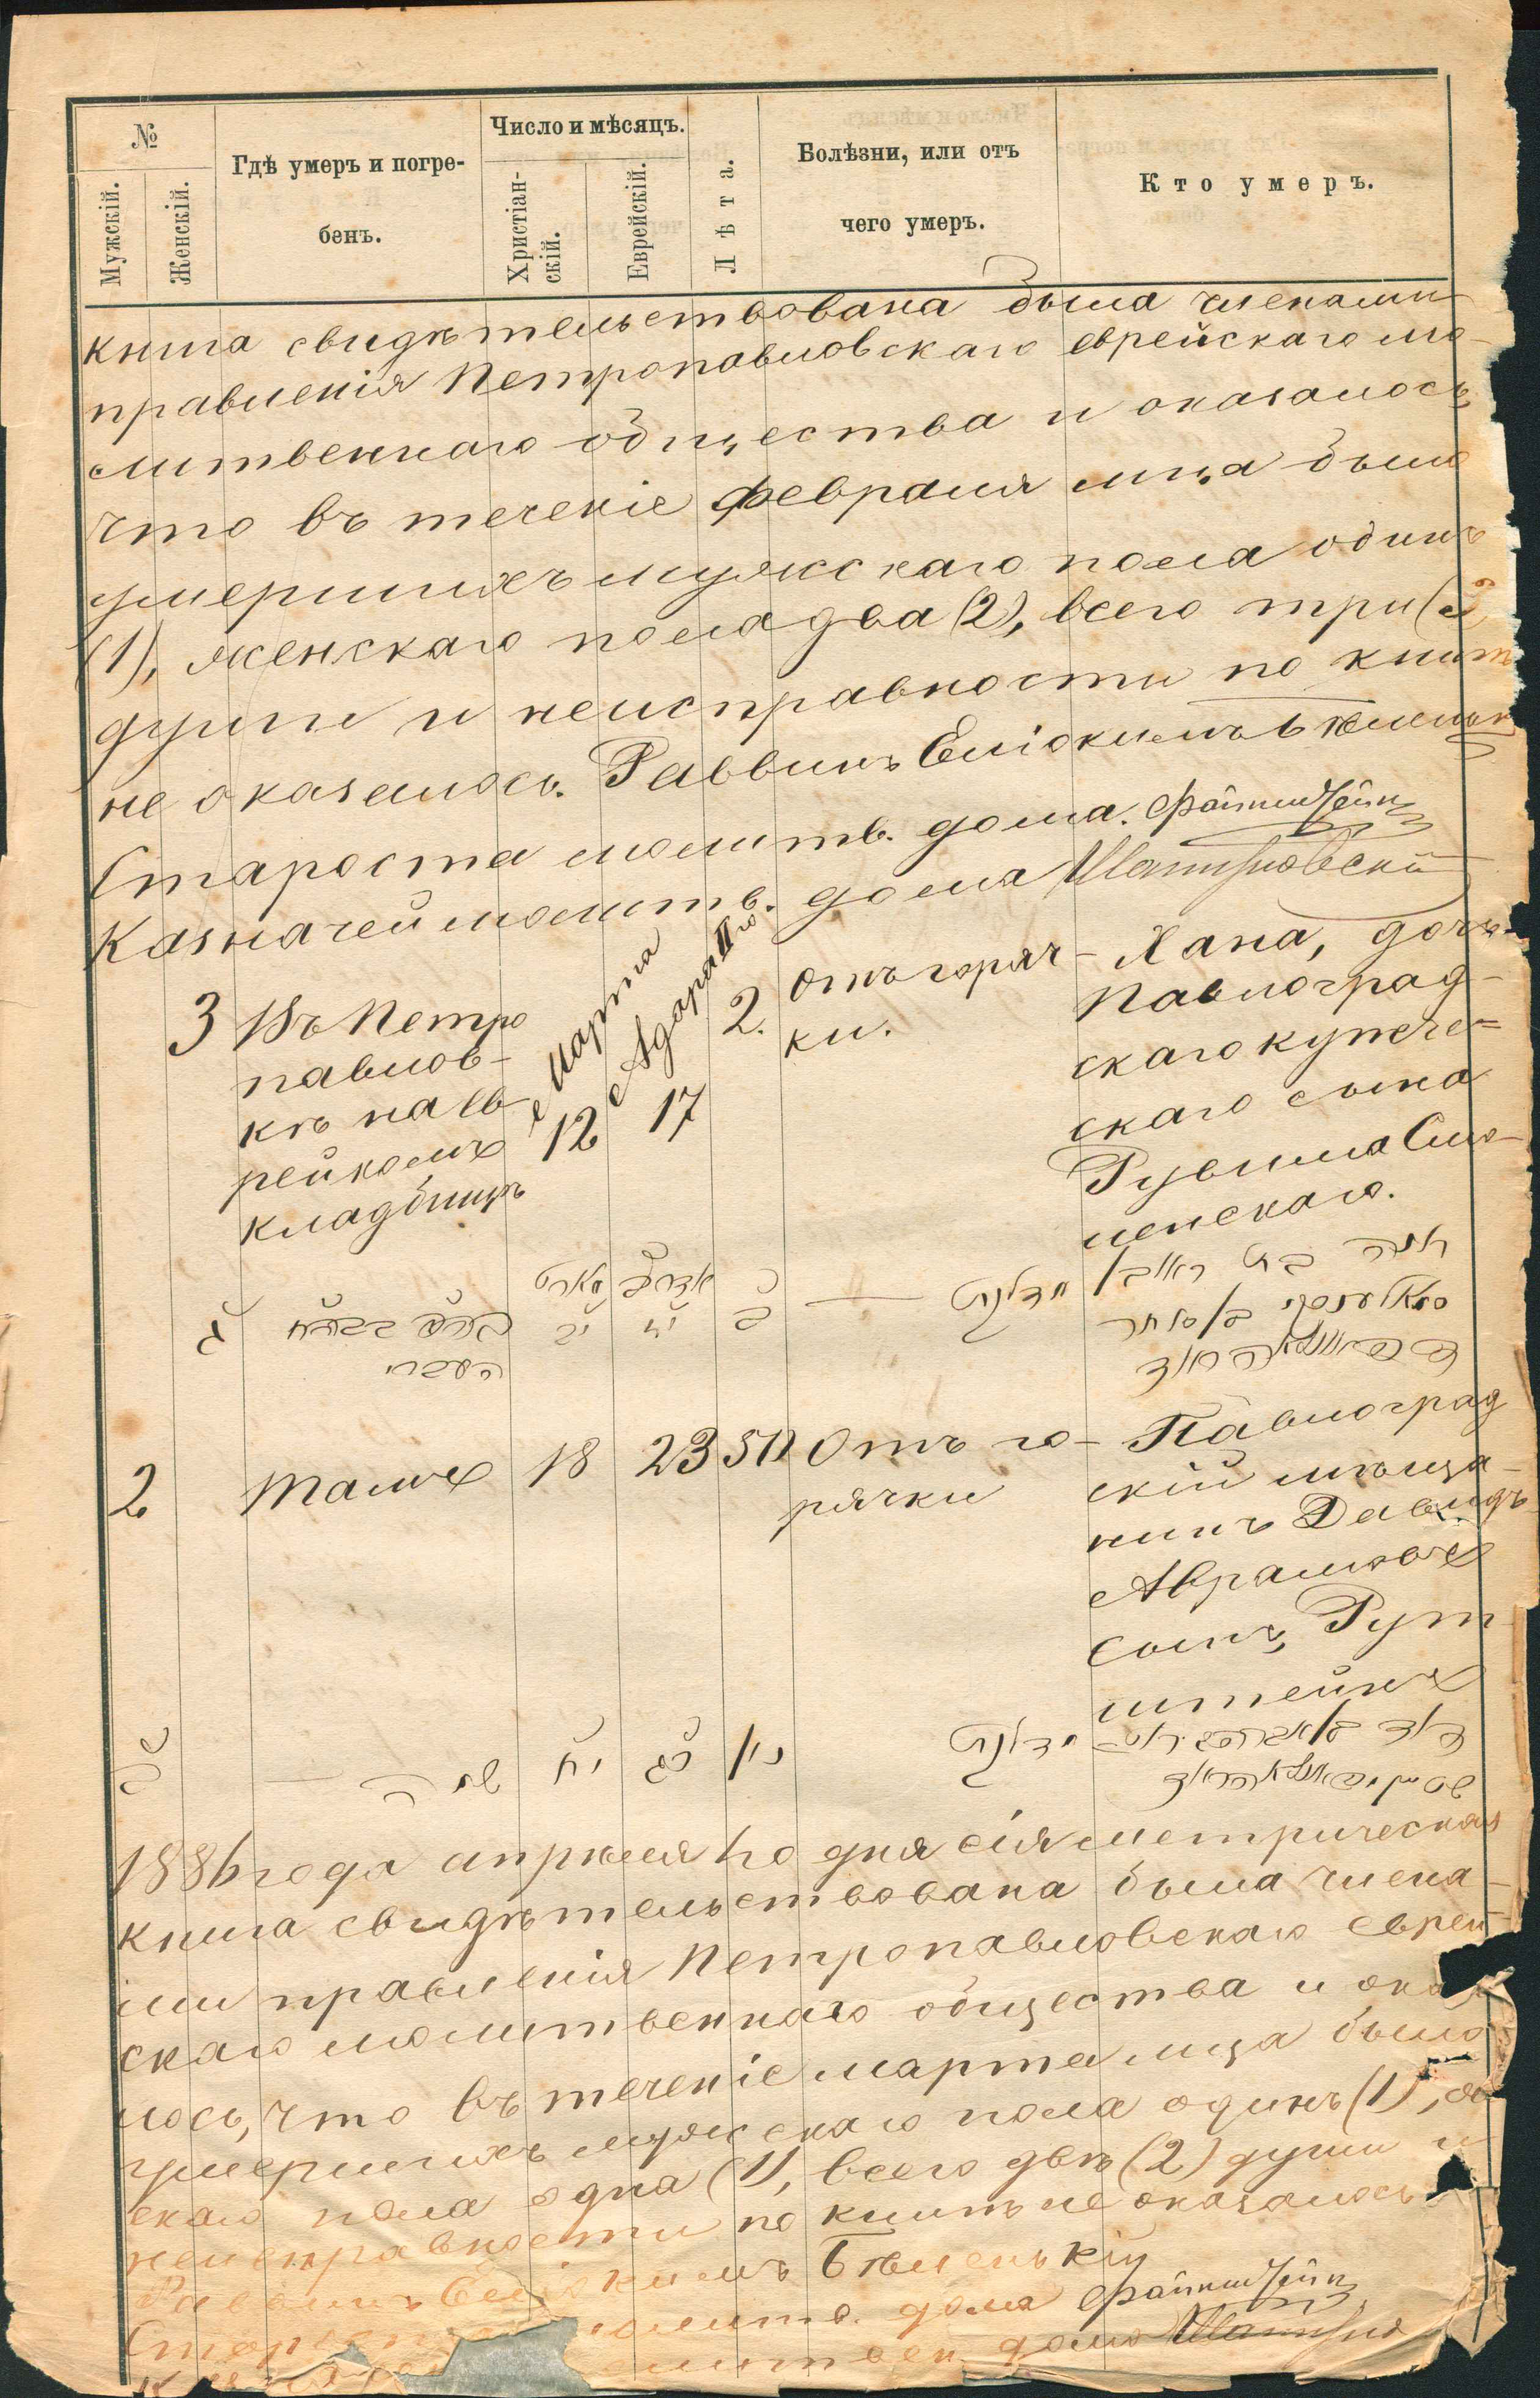 №
Мужскій.
Женскій.
Гдѣ умеръ и погре-
бенъ.
Число и мѣсяцъ.
Христіан-
скій.
Еврейскій.
Лѣта.
Болѣзни, или отъ
чего умеръ.
Кто умеръ.
книга свидѣтельствована была членами
правленія Петропавловскаго еврейскаго мо-
литвеннаго общества и оказалось
что въ теченіе февраля мца было
умершихъ мужскаго пола одинъ
(1), женскаго пола два (2), всего три (3)
души и неисправности по книгѣ
не оказалось. Раввинъ Еліокимъ Бѣленькій
Староста молитв. дома. Файнштейн
Казначей молитв. дома
3 Въ Петро
павлов-
кѣ на ев
рейкомъ
кладбищѣ
Марта
12
Адара II го
17
2.
Отъ горяч-
ки.
Хана, дочь
Павлоград-
скаго купече-
скаго сына
Рувима Смо-
ленскаго.
חנה בת ראובן
2 Тамъ 18 23 50 Отъ го-
рячки
Павлоград
скій мѣща-
нинъ Давидъ
Аврамовъ
сынъ, Рут
штейнъ
שם
1886 года апрѣля 1го дня сія метрическая
книга свидѣтельствована была члена-
ми правленія Петропавловскаго еврей-
скаго молитвеннаго общества и ока
лось, что въ теченіе марта мца было
умершихъ мужскаго пола одинъ (1), же
скаго пола одна (1), всего двѣ (2) души и
неисправности по книгѣ не оказалось
Раввинъ Еліокимъ Бѣленькій
Старо молитв. дома Файнштейн
дома